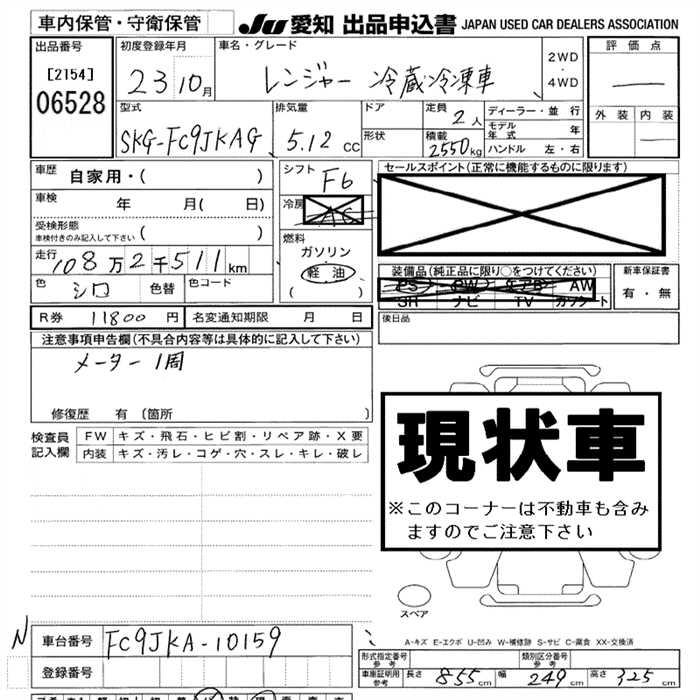 車内保管・守衛保管 JU 愛知 出品申込書 JAPAN USED CAR DEALERS ASSOCIATION
出品番号 初度登録年月 車名・グレード 評価点
[2154] 06528 23 10月 レンジャー 冷蔵冷凍車 2WD・4WD
外装 内装
型式 排気量 ドア 定員 2人 ディーラー・並行
SKG-FC9JKAG 5.12 CC 形状 積載 2550kg モデル年式 年
ハンドル 左・右
車歴 自家用・( ) シフト F6 セールスポイント(正常に機能するものに限ります)
車検 年 月( 日) 冷房 AC
受検形態 車検付きのみ記入して下さい ( ) 燃料
ガソリン
走行 108万2千511km 軽油 装備品(純正品に限り○をつけてください) 新車保証書
色 シロ 色替 色コード ( ) PS PW エアB AW 有・無
SR ナビ TV カセット
R券 11800円 名変通知期限 月 日 後日品
注意事項申告欄(不具合内容等は具体的に記入して下さい)
メーター1周
修復歴 有 〔箇所 〕
検査員記入欄 FW キズ・飛石・ヒビ割・リペア跡・X要
内装 キズ・汚レ・コゲ・穴・スレ・キレ・破レ
現状車
※このコーナーは不動車も含み
ますのでご注意下さい
スペア
N 車台番号 FC9JKA-10159
A-キズ E-エクボ U-凹み W-補修跡 S-サビ C-腐食 XX-交換済
登録番号 形式指定番号 参考 類別区分番号 参考
車庫証明用参考 長さ 855cm 幅 249cm 高さ 325cm